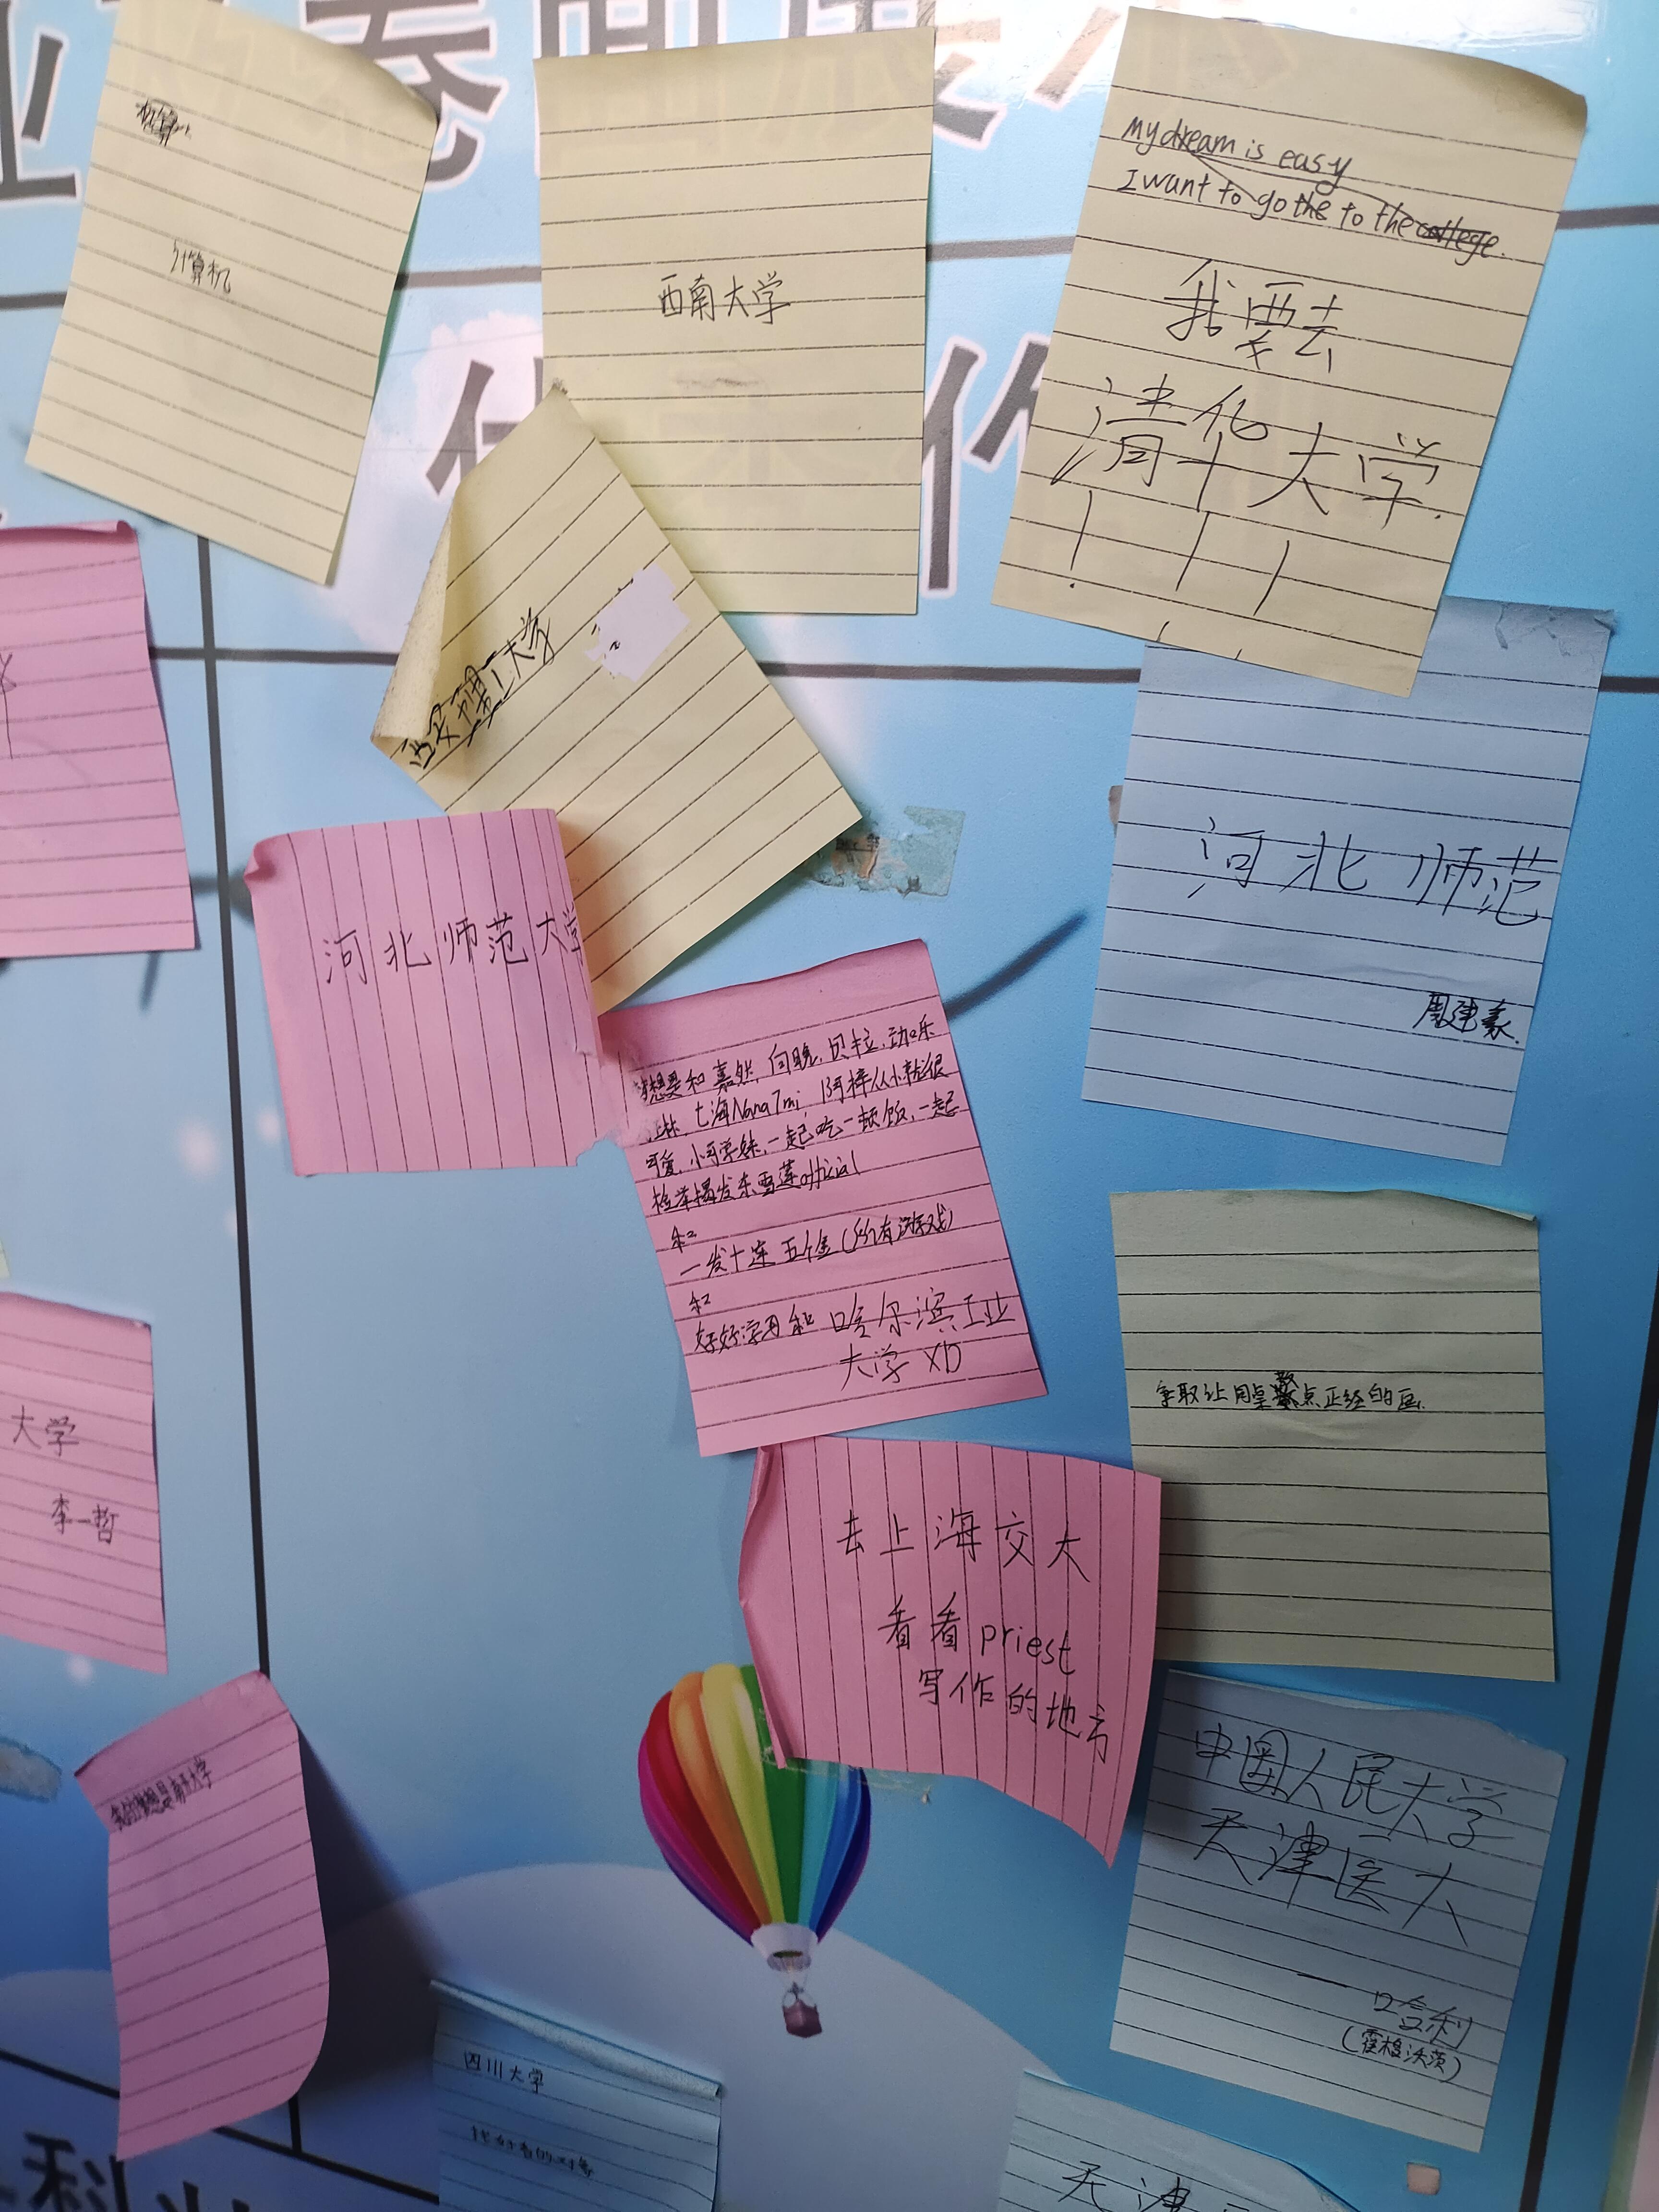 计算机
西南大学
My dream is easy
I want to go the to the college.
我要去
清华大学
! ! !
西安理工大学
河北师范大学
河北师范
想要和嘉然,向晚,贝拉,
七海Nana7mi,阿梓从小就很
可爱,小可学妹,一起吃一顿饭,一起
检举揭发东雪莲official
和
一发十连五个金(所有游戏)
和
好好学习和 哈尔滨工业
大学 XD
争取让同桌 点正经的画.
大学
李一哲
去上海交大
看看priest
写作的地方
中國人民大学
天津医大
——哈利
(霍格沃茨)
梦想是南开大学
四川大学
找好看的对象
天津